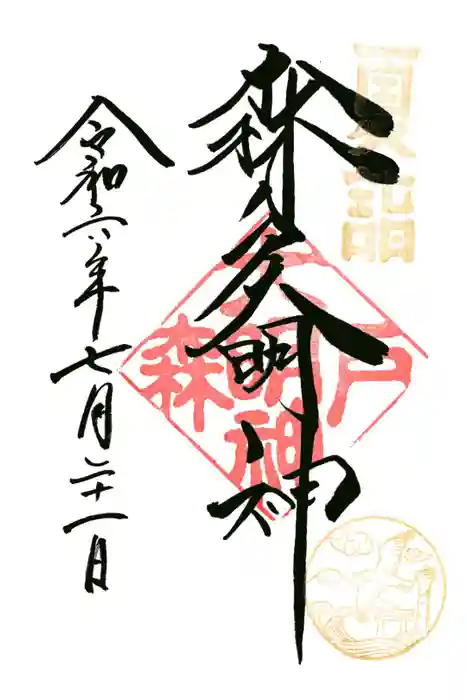 夏詣
森戸大明神
森戸大明神
令和六年七月二十一日